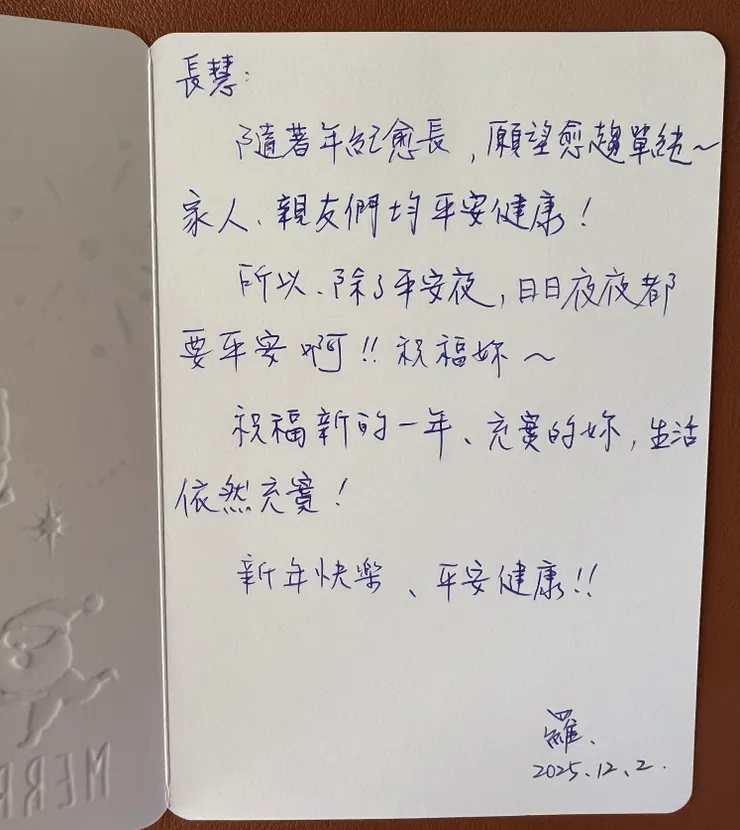 長慧：
隨著年紀愈長，願望愈趨單純～
家人、親友們均平安健康！
所以、除了平安夜，日日夜夜都
要平安啊！！祝福妳～
祝福新的一年、充實的妳，生活
依然充實！
新年快樂、平安健康！！
羅、
2025.12.2.
MERR